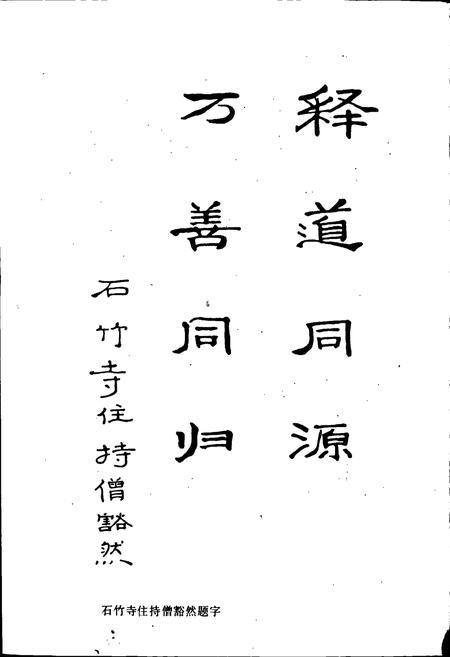 释道同源
万善同归
石竹寺住持僧豁然
石竹寺住持僧豁然题字